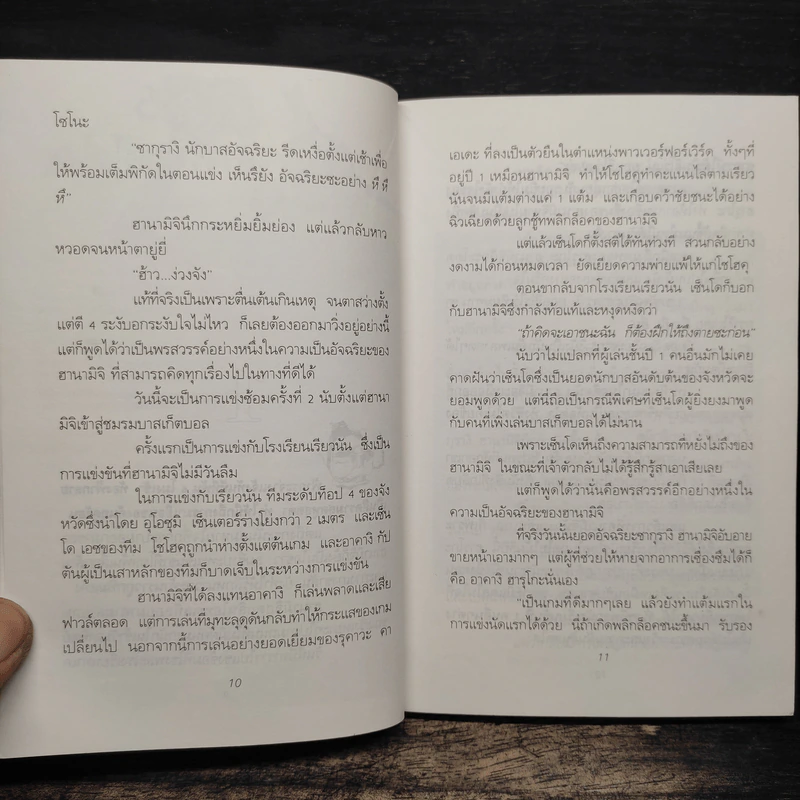 โซโนะ
"ซากุรางิ นักบาสอัจฉริยะ รีดเหงื่อตั้งแต่เช้าเพื่อ
ให้พร้อมเต็มพิกัดในตอนแข่ง เห็นรึยัง อัจฉริยะซะอย่าง หึ หึ
หึ"
ฮานามิจินึกกระหยิ่มยิ้มย่อง แต่แล้วกลับหาว
หวอดจนหน้าตายู่ยี่
"ฮ้าว...ง่วงจัง"
แท้ที่จริงเป็นเพราะตื่นเต้นเกินเหตุ จนตาสว่างตั้ง
แต่ตี 4 ระงับอกระงับใจไม่ไหว ก็เลยต้องออกมาวิ่งอยู่อย่างนี้
แต่ก็พูดได้ว่าเป็นพรสวรรค์อย่างหนึ่งในความเป็นอัจฉริยะของ
ฮานามิจิ ที่สามารถคิดทุกเรื่องไปในทางที่ดีได้
วันนี้จะเป็นการแข่งซ้อมครั้งที่ 2 นับตั้งแต่ฮานา
มิจิเข้าสู่ชมรมบาสเก็ตบอล
ครั้งแรกเป็นการแข่งกับโรงเรียนเรียวนัน ซึ่งเป็น
การแข่งขันที่ฮานามิจิไม่มีวันลืม
ในการแข่งกับเรียวนัน ทีมระดับท็อป 4 ของจัง
หวัดซึ่งนำโดย อุโอซุมิ เซ็นเตอร์ร่างโย่งกว่า 2 เมตร และเซ็น
โด เอซของทีม โชโฮคุถูกนำห่างตั้งแต่ต้นเกม และอาคางิ กัป
ตันผู้เป็นเสาหลักของทีมก็บาดเจ็บในระหว่างการแข่งขัน
ฮานามิจิที่ได้ลงแทนอาคางิ ก็เล่นพลาดและเสีย
ฟาวล์ตลอด แต่การเล่นที่มุทะลุดุดันกลับทำให้กระแสของเกม
เปลี่ยนไป นอกจากนี้การเล่นอย่างยอดเยี่ยมของรุคาวะ คา
10
เอเดะ ที่ลงเป็นตัวยืนในตำแหน่งพาวเวอร์ฟอร์เวิร์ด ทั้งๆที่
อยู่ปี 1 เหมือนฮานามิจิ ทำให้โชโฮคุทำคะแนนไล่ตามเรียว
นันจนมีแต้มต่างแค่ 1 แต้ม และเกือบคว้าชัยชนะได้อย่าง
ฉิวเฉียดด้วยลูกชู้ทพลิกล็อคของฮานามิจิ
แต่แล้วเซ็นโดก็ตั้งสติได้ทันท่วงที สวนกลับอย่าง
งดงามได้ก่อนหมดเวลา ยัดเยียดความพ่ายแพ้ให้แก่โชโฮคุ
ตอนขากลับจากโรงเรียนเรียวนัน เซ็นโดก็บอก
กับฮานามิจิซึ่งกำลังท้อแท้และหงุดหงิดว่า
"ถ้าคิดจะเอาชนะฉัน ก็ต้องฝึกให้ถึงตายซะก่อน"
นับว่าไม่แปลกที่ผู้เล่นชั้นปี 1 คนอื่นมักไม่เคย
คาดฝันว่าเซ็นโดซึ่งเป็นยอดนักบาสอันดับต้นของจังหวัดจะ
ยอมพูดด้วย แต่นี่ถือเป็นกรณีพิเศษที่เซ็นโดผู้ยิ่งยงมาพูด
กับคนที่เพิ่งเล่นบาสเก็ตบอลได้ไม่นาน
เพราะเซ็นโดเห็นถึงความสามารถที่หยั่งไม่ถึงของ
ฮานามิจิ ในขณะที่เจ้าตัวกลับไม่ได้รู้สึกรู้สาเอาเสียเลย
แต่ก็พูดได้ว่านั่นคือพรสวรรค์อีกอย่างหนึ่งใน
ความเป็นอัจฉริยะของฮานามิจิ
ที่จริงวันนั้นยอดอัจฉริยะซากุรางิ ฮานามิจิอับอาย
ขายหน้าเอามากๆ แต่ผู้ที่ช่วยให้หายจากอาการเซื่องซึมได้ก็
คือ อาคางิ ฮารุโกะนั่นเอง
"เป็นเกมที่ดีมากๆเลย แล้วยังทำแต้มแรกใน
การแข่งนัดแรกได้ด้วย นี่ถ้าเกิดพลิกล็อคชนะขึ้นมา รับรอง
11